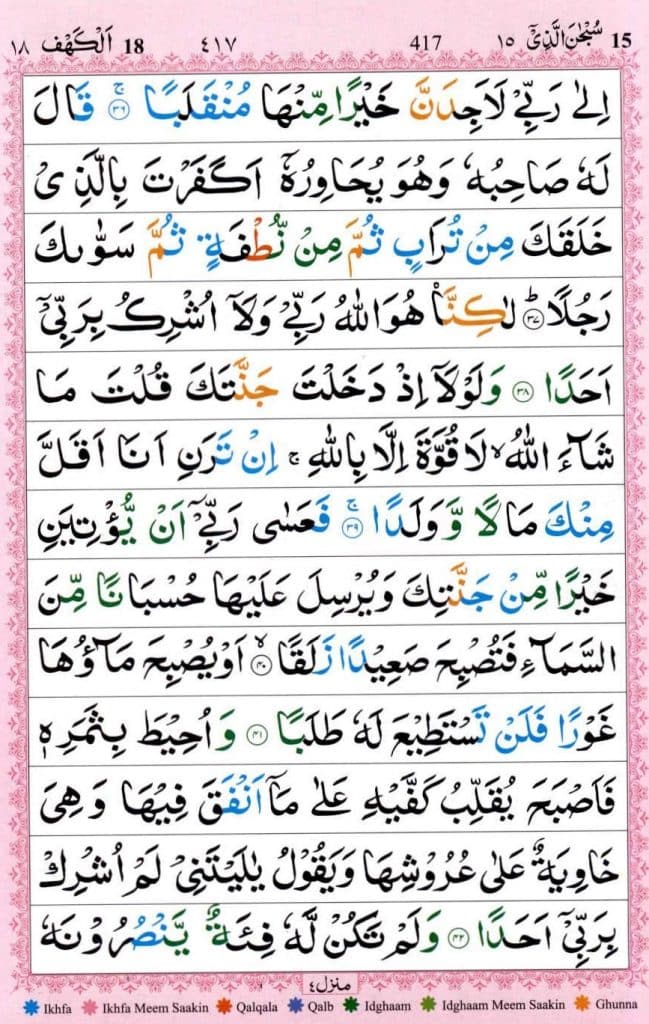 15 سُبْحٰنَ الَّذِىْۤ ١٥ 417 ٤١٧ 18 اَلْكَهْف ١٨
اِلٰى رَبِّىْ لَاَجِدَنَّ خَيْرًا مِّنْهَا مُنْقَلَبًا ۚ‏ ﴿۳۶﴾ قَالَ
لَهٗ صَاحِبُهٗ وَهُوَ يُحَاوِرُهٗۤ اَكَفَرْتَ بِالَّذِىْ
خَلَقَكَ مِنْ تُرَابٍ ثُمَّ مِنْ نُّطْفَةٍ ثُمَّ سَوّٰٮكَ
رَجُلًاؕ‏ ﴿۳۷﴾ لٰـكِنَّا۟ هُوَ اللّٰهُ رَبِّىْ وَلَاۤ اُشْرِكُ بِرَبِّىْۤ
اَحَدًا‏ ﴿۳۸﴾ وَلَوْلَاۤ اِذْ دَخَلْتَ جَنَّتَكَ قُلْتَ مَا
شَآءَ اللّٰهُ ۙ لَا قُوَّةَ اِلَّا بِاللّٰهِ‌ ۚ اِنْ تَرَنِ اَنَا اَقَلَّ
مِنْكَ مَالًا وَّوَلَدًا‌ ۚ‏ ﴿۳۹﴾ فَعَسٰى رَبِّىْۤ اَنْ يُّؤْتِيَنِ
خَيْرًا مِّنْ جَنَّتِكَ وَيُرْسِلَ عَلَيْهَا حُسْبَانًا مِّنَ
السَّمَآءِ فَتُصْبِحَ صَعِيْدًا زَلَـقًا ۙ‏ ﴿۴۰﴾ اَوْ يُصْبِحَ مَآؤُهَا
غَوْرًا فَلَنْ تَسْتَطِيْعَ لَهٗ طَلَبًا‏ ﴿۴۱﴾ وَاُحِيْطَ بِثَمَرِهٖ
فَاَصْبَحَ يُقَلِّبُ كَفَّيْهِ عَلٰى مَاۤ اَنْفَقَ فِيْهَا وَهِىَ
خَاوِيَةٌ عَلٰى عُرُوْشِهَا وَيَقُوْلُ يٰلَيْتَنِىْ لَمْ اُشْرِكْ
بِرَبِّىْۤ اَحَدًا‏ ﴿۴۲﴾ وَلَمْ تَكُنْ لَّهٗ فِئَةٌ يَّنْصُرُوْنَهٗ
منزل ٤
Ikhfa Ikhfa Meem Saakin Qalqala Qalb Idghaam Idghaam Meem Saakin Ghunna